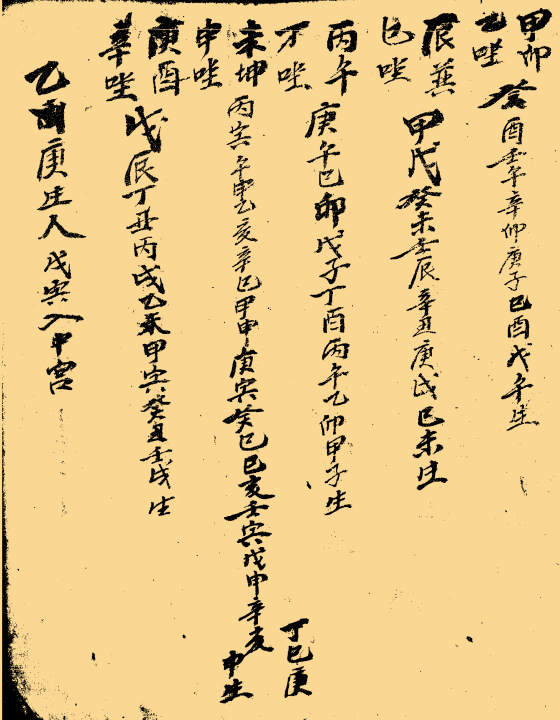 甲卯
乙㘴
癸酉壬午辛卯庚子己酉戊午生
辰巽
巳㘴
甲戌癸未壬辰辛丑庚戌己未生
丙午
丁㘴
庚午己卯戊子丁酉丙午乙卯甲子生
未坤
申㘴
丙寅午申乙亥辛巳甲申庚寅癸巳己亥壬寅戊申辛亥
丁巳庚
申生
庚酉
辛㘴
戊辰丁丑丙戌乙未甲寅癸丑壬戌生
乙酉庚生人戊寅入中宮